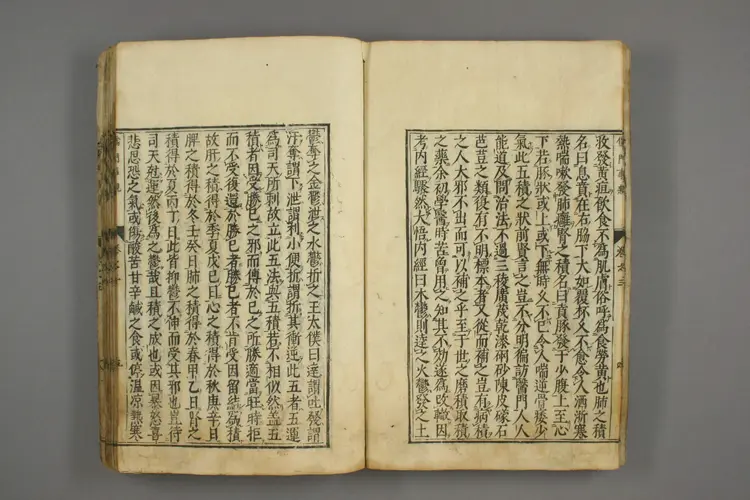 儒門事親 卷之三
收發黃疸飲食不為肌膚俗呼為食勞黃也肺之積
名曰息賁在右脇下大如覆杯久不愈令人洒淅寒
熱喘嗽發肺癰腎之積名曰賁豚發于少腹上至心
下若豚狀或上或下無時久不已令人喘逆骨痿少
氣此五積之狀前賢言之豈不分明徧訪醫門人人
能道及問治法不過三稜廣茂乾漆硇砂陳皮礞石
巴豆之類復有不明標本者又從而補之豈有病積
之人大邪不出而可以補之乎至于世之磨積取積
之藥余初學醫時苦曾用之知其不功遂為改轍因
考內經驟然大悟內經曰木鬱則達之火鬱發之土
鬱奪之金鬱泄之水鬱折之王太僕曰達謂吐發謂
汗奪謂下泄謂利小便折謂折其衝逆此五者五運
為司天所制故立此五法與五積若不相似然蓋五
積者因受勝已之邪而傳於已之所勝適當旺時拒
而不受復還於勝已者勝已者不肯受因留結為積
故肝之積得於季夏戊已日心之積得於秋庚辛日
脾之積得於冬壬癸日肺之積得於春甲乙日腎之
積得於夏丙丁日此皆抑鬱不伸而受其邪也豈待
司天剋運然後為之鬱哉且積之成也或因暴怒喜
悲思恐之氣或傷酸苦甘辛鹹之食或停溫涼熱寒